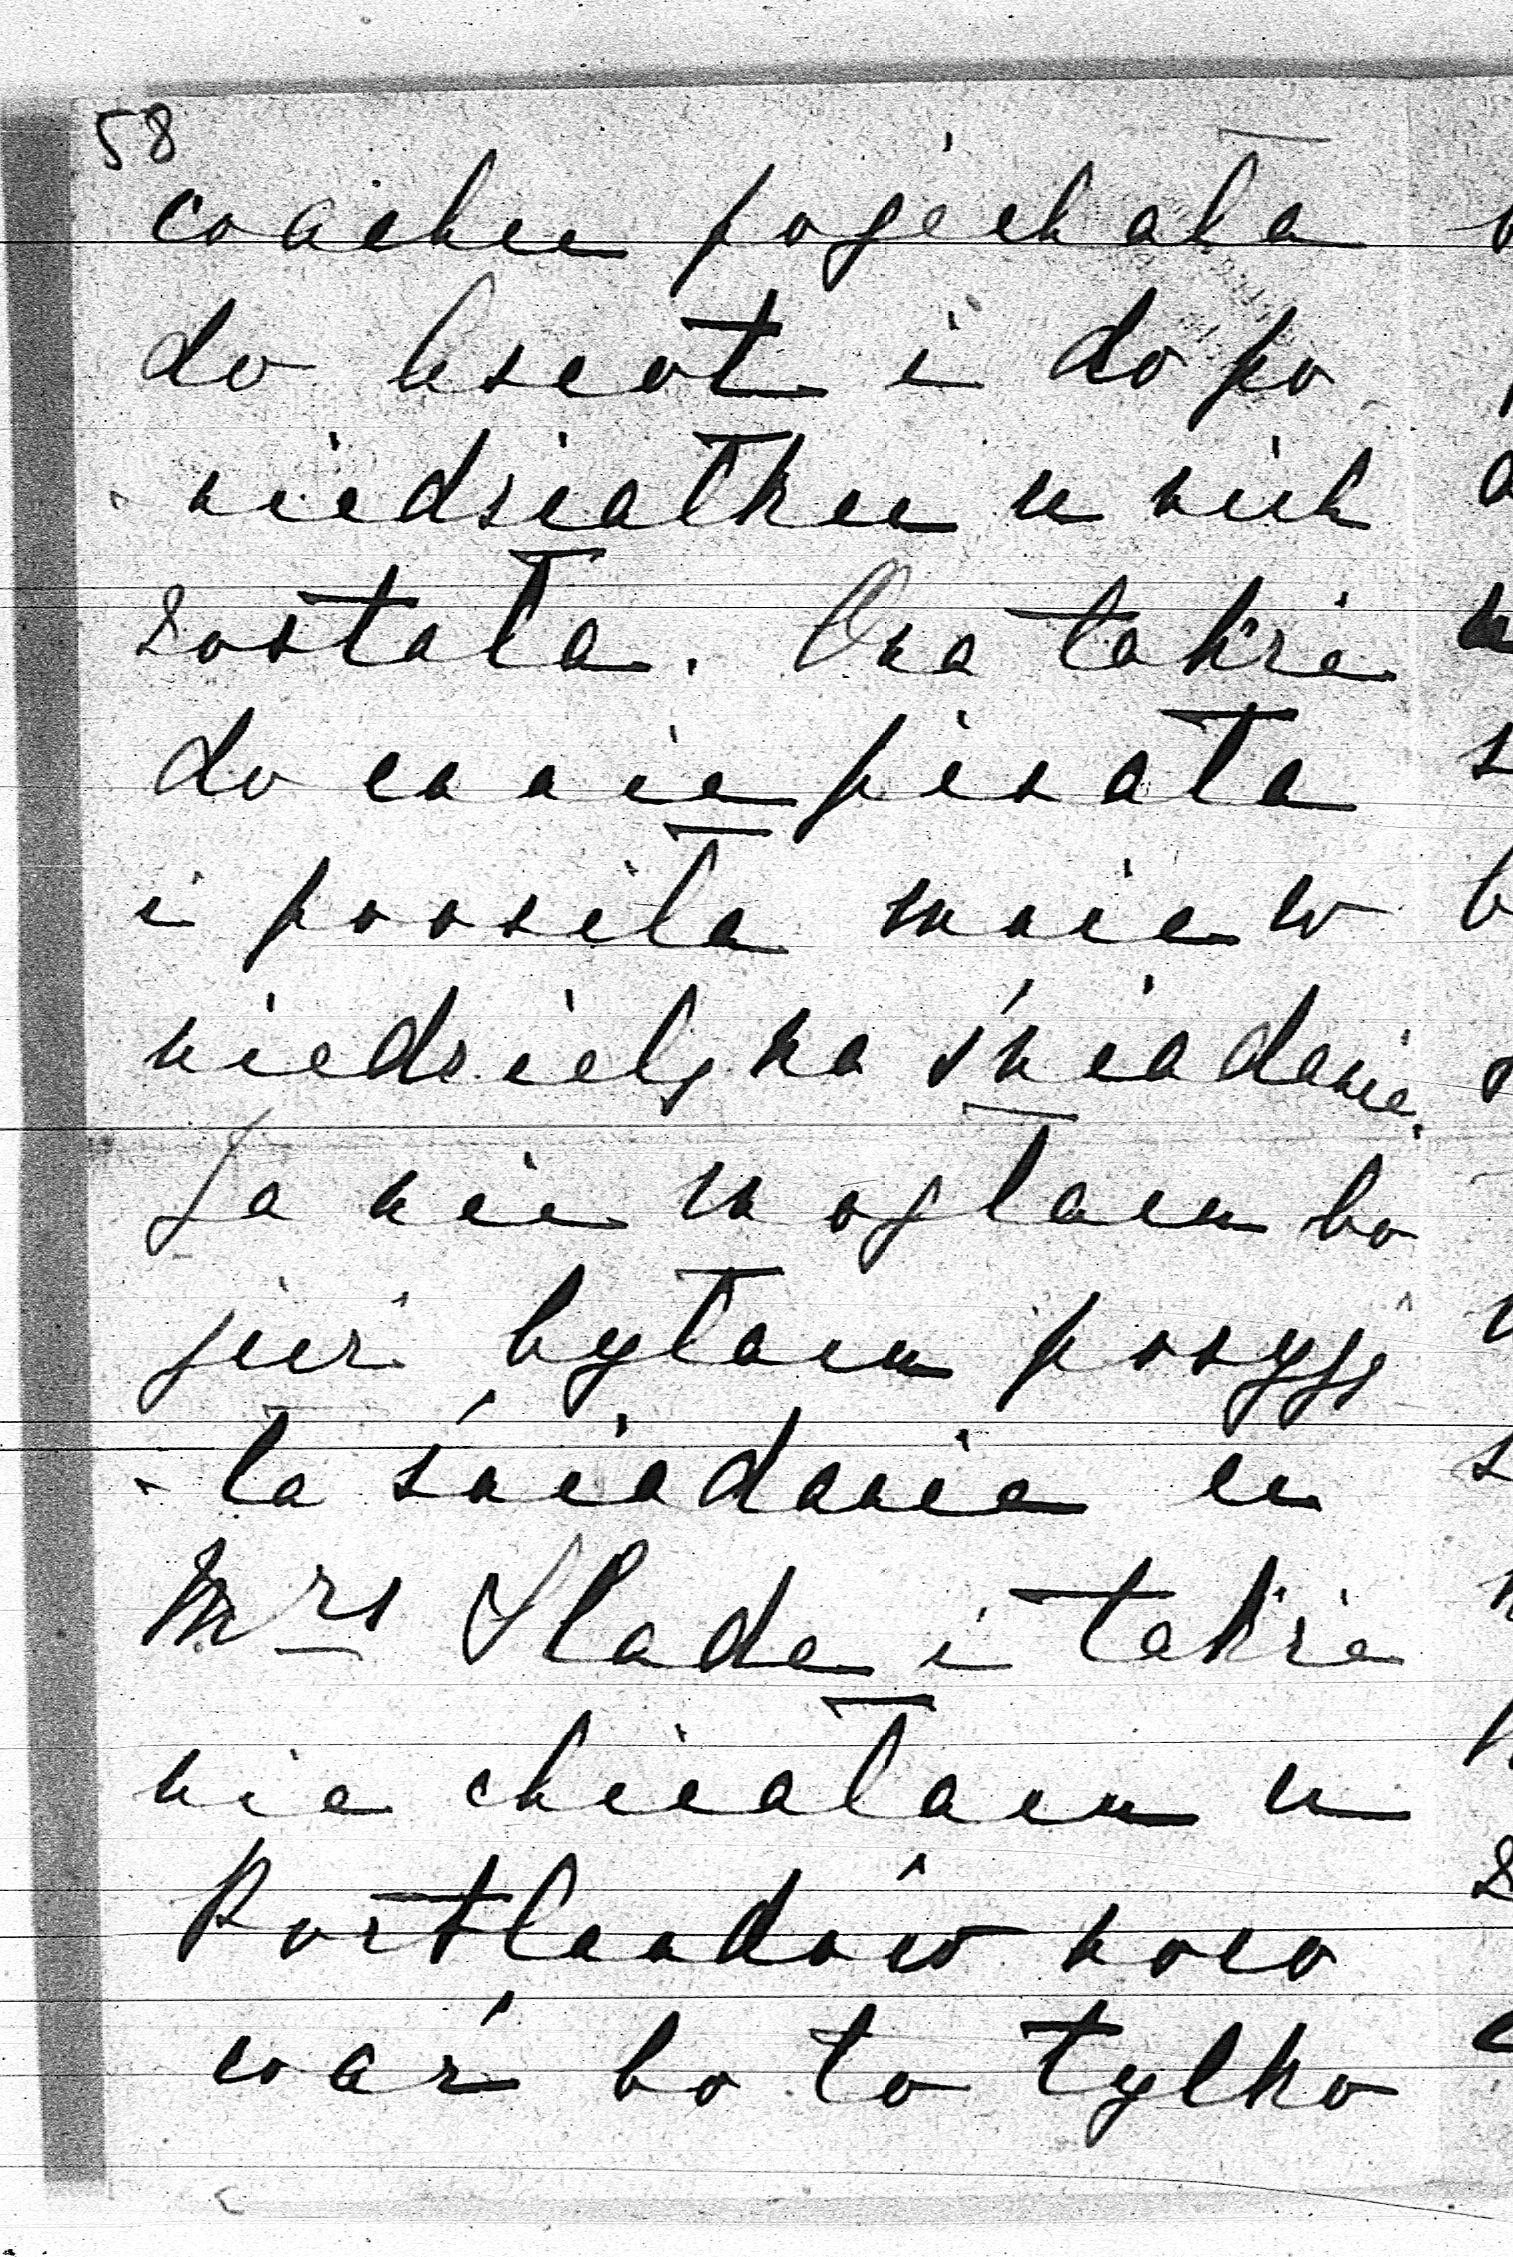 58
coachu pojechała
do Ascot i do po
niedziałku u nich
została. Ona także
do mnie pisała
i prosiła mnie w
niedzielę na śniadanie.
Ja nie mogłam bo
już byłam przyję
-ła śniadanie u
Mrs Slade i także
nie chciałam u
Portlandów noco
wać bo to tylko